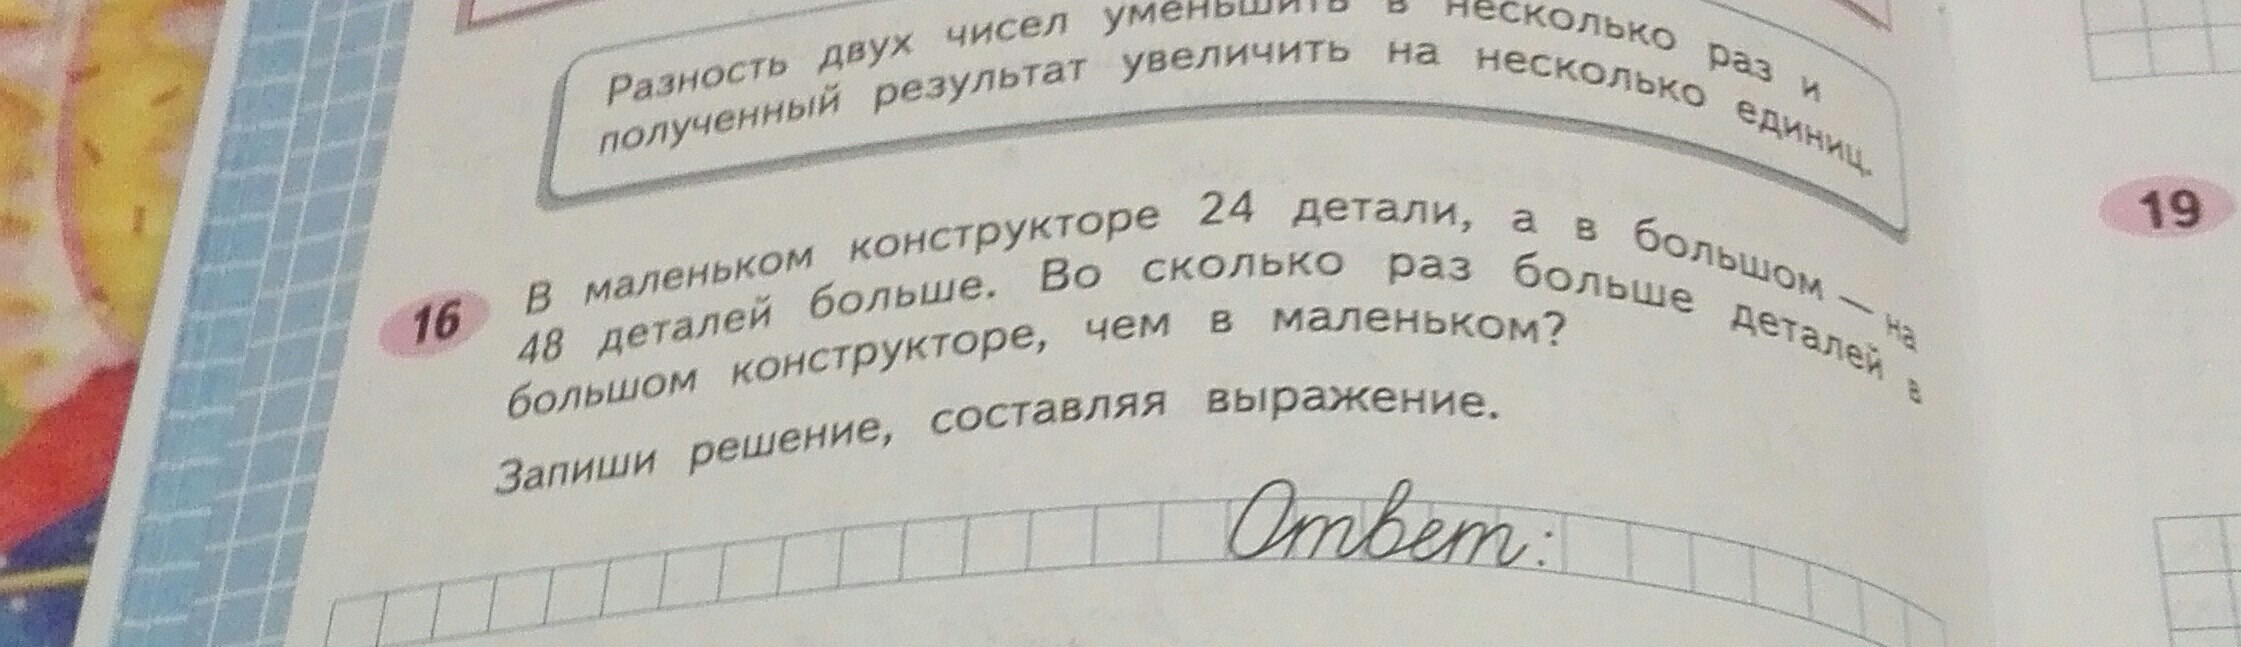 Разность двух чисел уменьшить в несколько раз и
полученный результат увеличить на несколько единиц.
16
В маленьком конструкторе 24 детали, а в большом — на
48 деталей больше. Во сколько раз больше деталей в
большом конструкторе, чем в маленьком?
Запиши решение, составляя выражение.
Ответ:
19